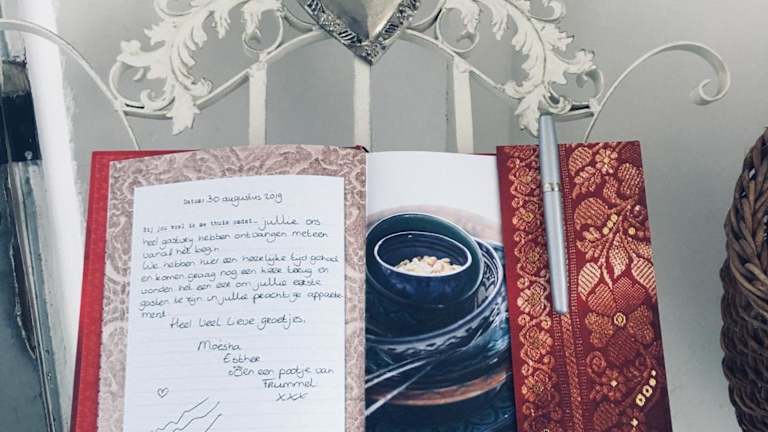 Datum: 30 augustus 2019
Bij jou voel ik me thuis omdat... jullie ons
heel gastvrij hebben ontvangen meteen
vanaf het begin.
We hebben hier een heerlijke tijd gehad
en komen graag nog een keer terug en
vonden het een eer om jullie eerste
gasten te zijn in jullie prachtige apparte-
ment.
Heel veel lieve groetjes,
Moësha
Esther
en een pootje van
Frummel
xxx